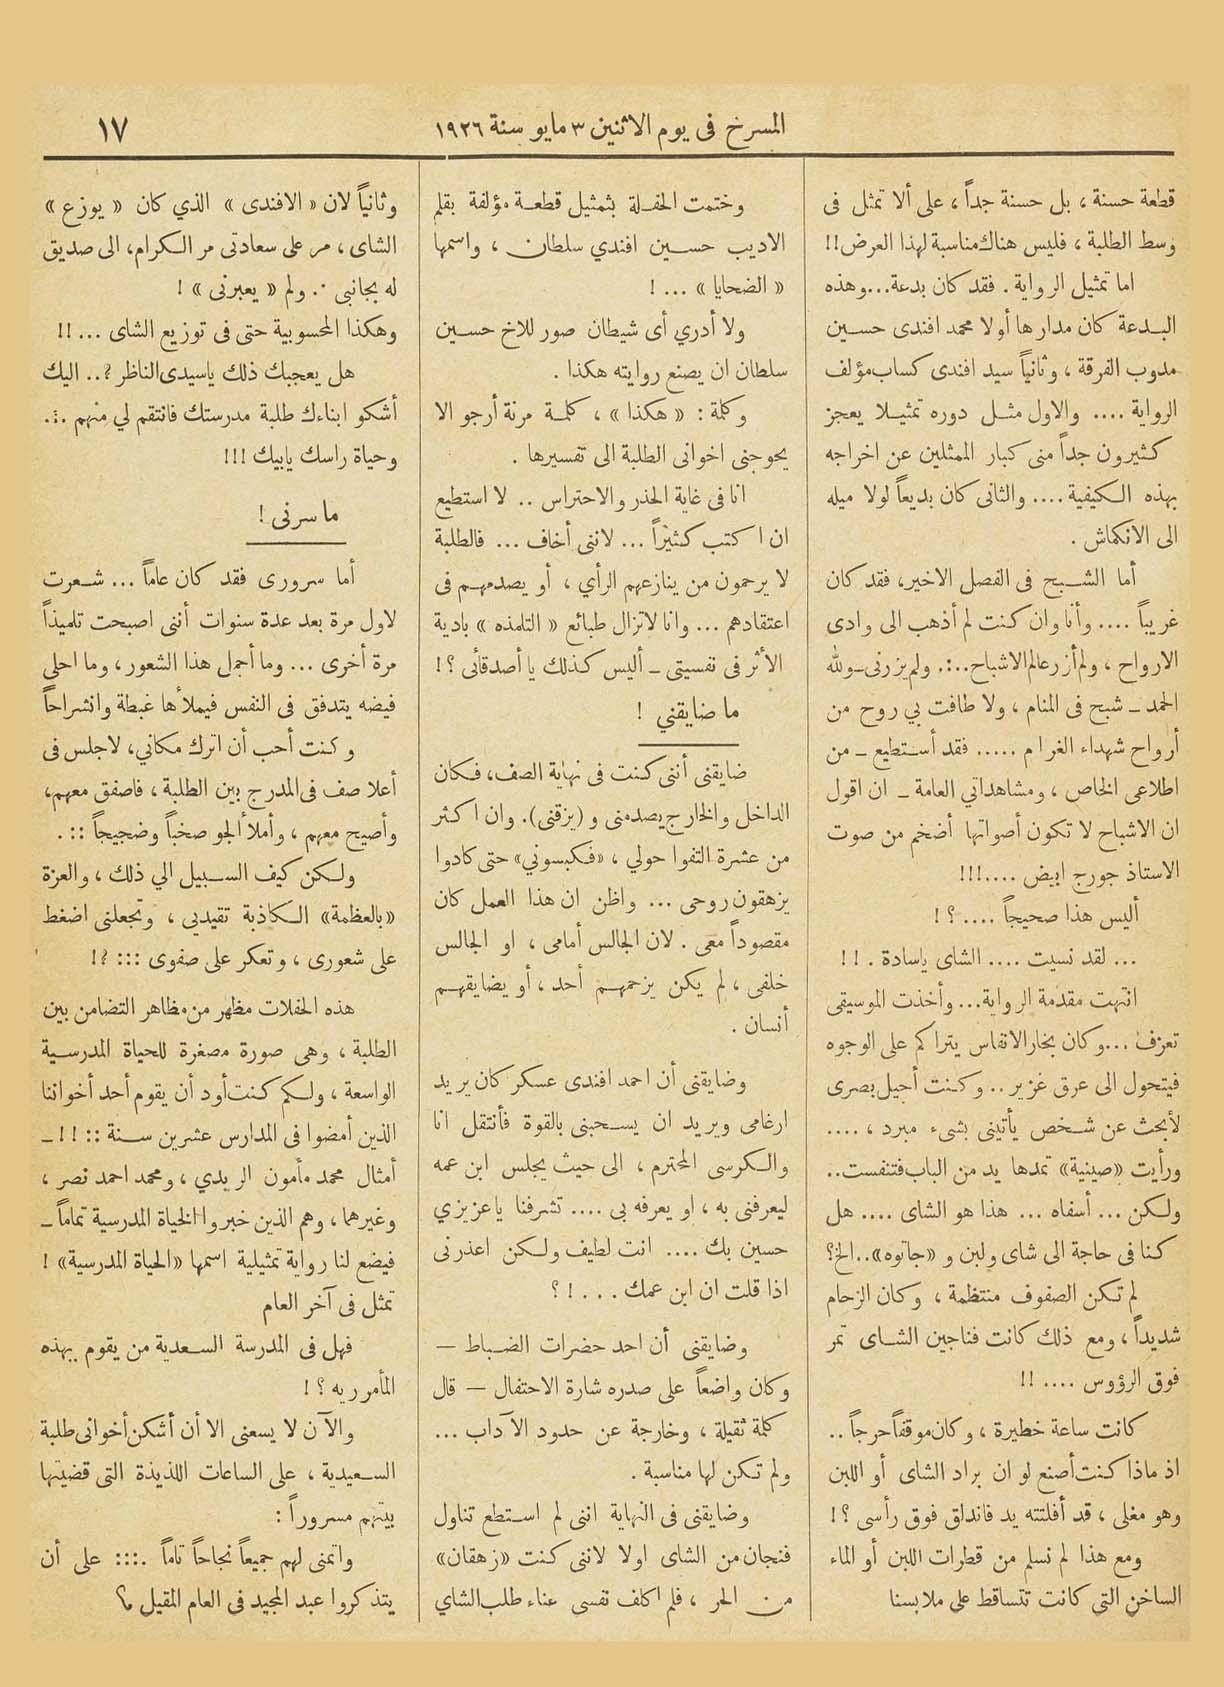 المسرح فى يوم الاثنين ٣ مايو سنة ١٩٢٦
١٧
قطعة حسنة ، بل حسنة جداً ، على ألا تمثل فى
وسط الطلبة ، فليس هناك مناسبة لهذا العرض !!
اما تمثيل الرواية . فقد كان بدعة...وهذه
البدعة كان مدارها أولا محمد افندى حسين
مدوب الفرقة ، وثانياً سيد افندى كساب مؤلف
الرواية .... والاول مثل دوره تمثيلا يعجز
كثيرون جداً منى كبار الممثلين عن اخراجه
بهذه الكيفية .... والثانى كان بديعاً لولا ميله
الى الانكماش .
أما الشبح فى الفصل الاخير، فقد كان
غريباً .... وأنا وان كنت لم أذهب الى وادى
الارواح ، ولم أزر عالم الاشباح..:. ولم يزرنى ــ ولله
الحمد ــ شبح فى المنام ، ولا طافت بي روح من
أرواح شهداء الغرام ..... فقد أستطيع ــ من
اطلاعى الخاص ، ومشاهداتي العامة ــ ان اقول
ان الاشباح لا تكون أصواتها أضخم من صوت
الاستاذ جورج ابيض ....!!!
أليس هذا صحيحاً .... ؟ !
... لقد نسيت .... الشاى ياسادة . ! !
انتهت مقدمة الرواية... وأخذت الموسيقى
تعزف ...وكان بخار الانفاس يتراكم على الوجوه
فيتحول الى عرق غزير .. وكنت أجيل بصرى
لأبحث عن شخص يأتينى بشىء مبرد ، ....
ورأيت «صينية» تمدها يد من الباب فتنفست..
ولكن ... أسفاه ... هذا هو الشاى .... هل
كنا فى حاجة الى شاى ولبن و «جاتوه»..الخ؟
لم تكن الصفوف منتظمة ، وكان الزحام
شديداً ، ومع ذلك كانت فناجين الشاى تمر
فوق الرؤوس .... !!
كانت ساعة خطيرة ، وكان موقفاً حرجاً ..
اذ ماذا كنت أصنع لو ان براد الشاى أو اللبن
وهو مغلى ، قد أفلتته يد فاندلق فوق رأسى ؟ !
ومع هذا لم نسلم من قطرات اللبن أو الماء
الساخن التى كانت تتساقط على ملابسنا
وختمت الحفلة بتمثيل قطعة مؤلفة بقلم
الاديب حسين افندي سلطان ، واسمها
« الضحايا » ... !
ولا أدري أى شيطان صور للاخ حسين
سلطان ان يصنع روايته هكذا .
وكلمة : « هكذا » ، كلمة مرنة أرجو الا
يحوجنى اخوانى الطلبة الى تفسيرها .
انا فى غاية الحذر والاحتراس .. لا استطيع
ان اكتب كثيراً ... لاننى أخاف ... فالطلبة
لا يرحمون من ينازعهم الرأي ، أو يصدمهم فى
اعتقادهم ... وانا لا تزال طبائع « التلمذه » بادية
الأثر فى نفسيتى ــ أليس كذلك يا أصدقائى ؟ !
ما ضايقني !
ضايقنى أننى كنت فى نهاية الصف، فكان
الداخل والخارج يصدمنى و (يزقنى). وان اكثر
من عشرة التفوا حولي ، «فكبسوني» حتى كادوا
يزهقون روحى ... واظن ان هذا العمل كان
مقصوداً معى . لان الجالس أمامى ، او الجالس
خلفى ، لم يكن يزحمهم أحد ، أو يضايقهم
أنسان .
وضايقنى أن احمد افندى عسكر كان يريد
ارغامى ويريد ان يسحبنى بالقوة فأنتقل انا
والكرسى المحترم ، الى حيث يجلس ابن عمه
ليعرفنى به ، او يعرفه بى .... تشرفنا يا عزيزي
حسين بك .... انت لطيف ولكن اعذرنى
اذا قلت ان ابن عمك . . . ! ؟
وضايقنى أن احد حضرات الضباط —
وكان واضعاً على صدره شارة الاحتفال — قال
كلمة ثقيلة ، وخارجة عن حدود الآداب ...
ولم تكن لها مناسبة .
وضايقنى فى النهاية اننى لم استطع تناول
فنجان من الشاى اولا لاننى كنت «زهقان»
من الحر ، فلم اكلف نفسى عناء طلب الشاي
وثانياً لان « الافندى » الذي كان « يوزع »
الشاى ، مر على سعادتى مر الكرام، الى صديق
له بجانبى .. ولم « يعبرنى » !
وهكذا المحسوبية حتى فى توزيع الشاى ... !!
هل يعجبك ذلك ياسيدى الناظر ؟.. اليك
أشكو ابناءك طلبة مدرستك فانتقم لي منهم ...
وحياة راسك يابيك !!!
ما سرنى !
أما سرورى فقد كان عاماً ... شعرت
لاول مرة بعد عدة سنوات أننى اصبحت تلميذاً
مرة أخرى ... وما أجمل هذا الشعور ، وما احلى
فيضه يتدفق فى النفس فيملأها غبطة وانشراحاً
وكنت أحب أن اترك مكاني، لاجلس فى
أعلا صف فى المدرج بين الطلبة ، فاصفق معهم،
وأصيح معهم ، وأملأ الجو صخباً وضجيجاً :: .
ولكن كيف السبيل الي ذلك ، والعزة
«بالعظمة» الكاذبة تقيدبى ، وتجعلنى اضغط
على شعورى ، وتعكر على صفوى ::: ؟!
هذه الحفلات مظهر من مظاهر التضامن بين
الطلبة ، وهى صورة مصغرة للحياة المدرسية
الواسعة ، ولكم كنت أود أن يقوم أحد أخواننا
الذين أمضوا فى المدارس عشرين سنة :: !! ــ
أمثال محمد مأمون الريدي ، ومحمد احمد نصر ،
وغيرهما ، وهم الذين خبروا الحياة المدرسية تماماً ــ
فيضع لنا رواية تمثيلية اسمها «الحياة المدرسية» !
تمثل فى آخر العام
فهل فى المدرسة السعدية من يقوم بهذه
المأمريه ؟ !
والآن لا يسعنى الا أن أشكن أخوانى طلبة
السعيدية ، على الساعات اللذيذة التى قضيتها
بينهم مسروراً :
واتمنى لهم جميعاً نجاحاً تاماً .::: على أن
يتذكروا عبد المجيد فى العام المقبل م؟